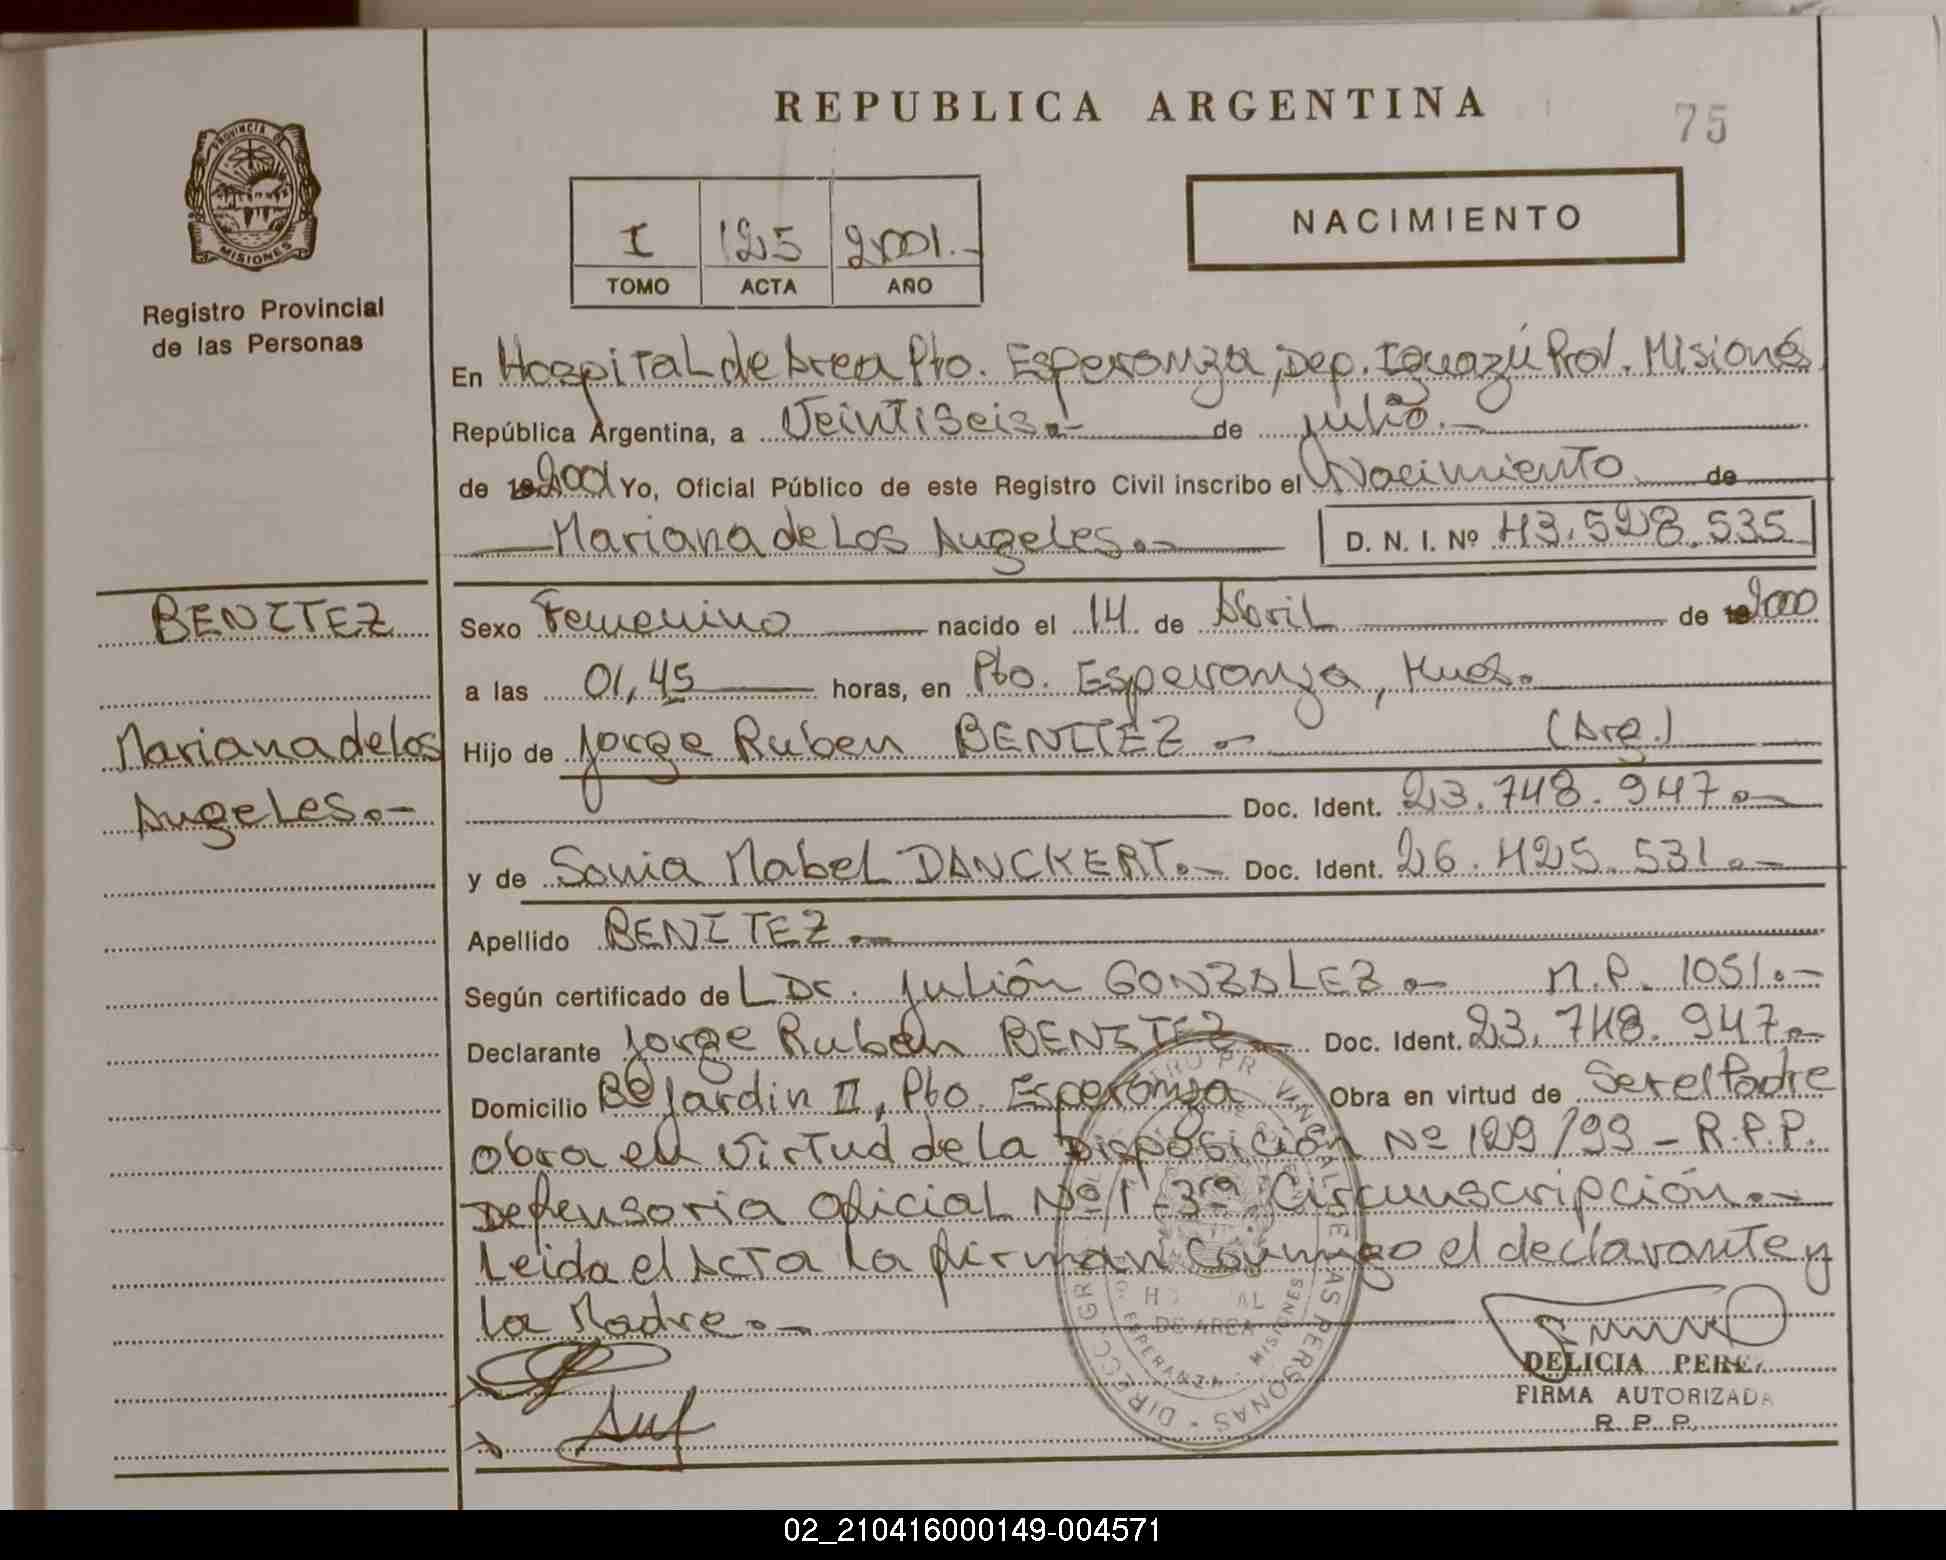 REPUBLICA ARGENTINA
75
PROVINCIA DE
MISIONES
Registro Provincial
de las Personas
I 125 2001.-
TOMO ACTA AÑO
NACIMIENTO
En Hospital de Area Pto. Esperanza, Dep. Iguazú Prov. Misiones
República Argentina, a Veintiseis.- de julio.-
de 2001 Yo, Oficial Público de este Registro Civil inscribo el Nacimiento de
Mariana de Los Angeles.- D. N. I. Nº 43.528.535
BENITEZ
Mariana de los
Angeles.-
Sexo Femenino nacido el 14 de Abril de 2000
a las 01,45 horas, en Pto. Esperanza, Mnes.
Hijo de Jorge Ruben BENITEZ.- (Arg.)
Doc. Ident. 23.748.947.-
y de Sonia Mabel DANCKERT.- Doc. Ident. 26.425.531.-
Apellido BENITEZ.-
Según certificado de L Dr. Julión GONZALEZ.- M.P. 1051.-
Declarante Jorge Ruben BENITEZ.- Doc. Ident. 23.748.947.-
Domicilio Bº Jardin II, Pto. Esperanza Obra en virtud de Ser el Padre
obra en virtud de la Disposición Nº 129/99 - R.P.P.
Defensoria Oficial Nº 1 - 3ra Circunscripción.-
Leida el Acta la firman conmigo el declarante y
la Madre.-
DE AREA
ESPERANZA - MISIONES
DELICIA PEREZ
FIRMA AUTORIZADA
R. P. P.
02_210416000149-004571